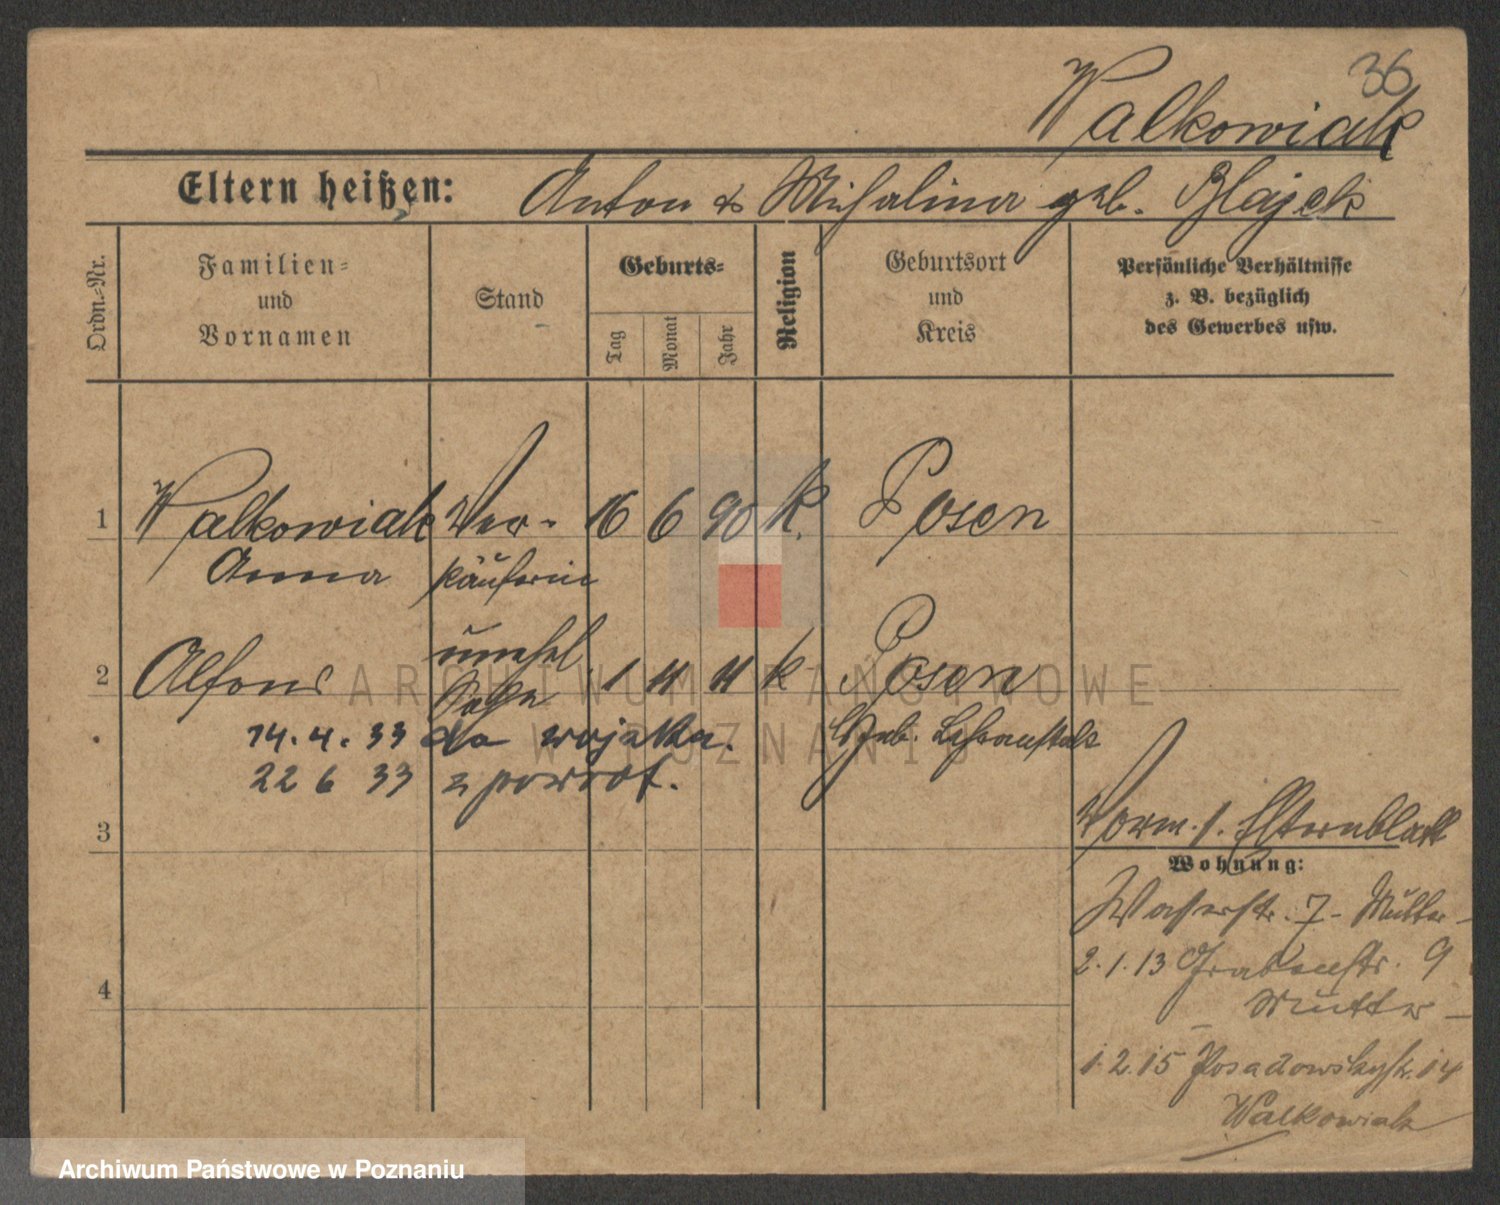 36
Walkowiak
Eltern heißen: Anton & Michalina geb. Blajek
Ordn.-Nr.
Familien-
und
Vornamen
Stand
Geburts-
Tag
Monat
Jahr
Religion
Geburtsort
und
Kreis
Persönliche Verhältnisse
z. B. bezüglich
des Gewerbes usw.
1 Walkowiak Ver- 16 6 90 k. Posen
Anna käuferin
2 Alfons unehel 1 11 11 k Posen
Sohn
14.4.33 do wojska.
Heb. Lehranstalt
22 6 33 z powrot.
3
Vorm. 1. Elternblatt
Wohnung:
Wasserstr. 7 - Mutter -
2.1.13 Grabenstr. 9
Mutter -
4
1.2.15 Posadowskystr. 14
Walkowiak
ARCHIWUM PAŃSTWOWE
W POZNANIU
Archiwum Państwowe w Poznaniu